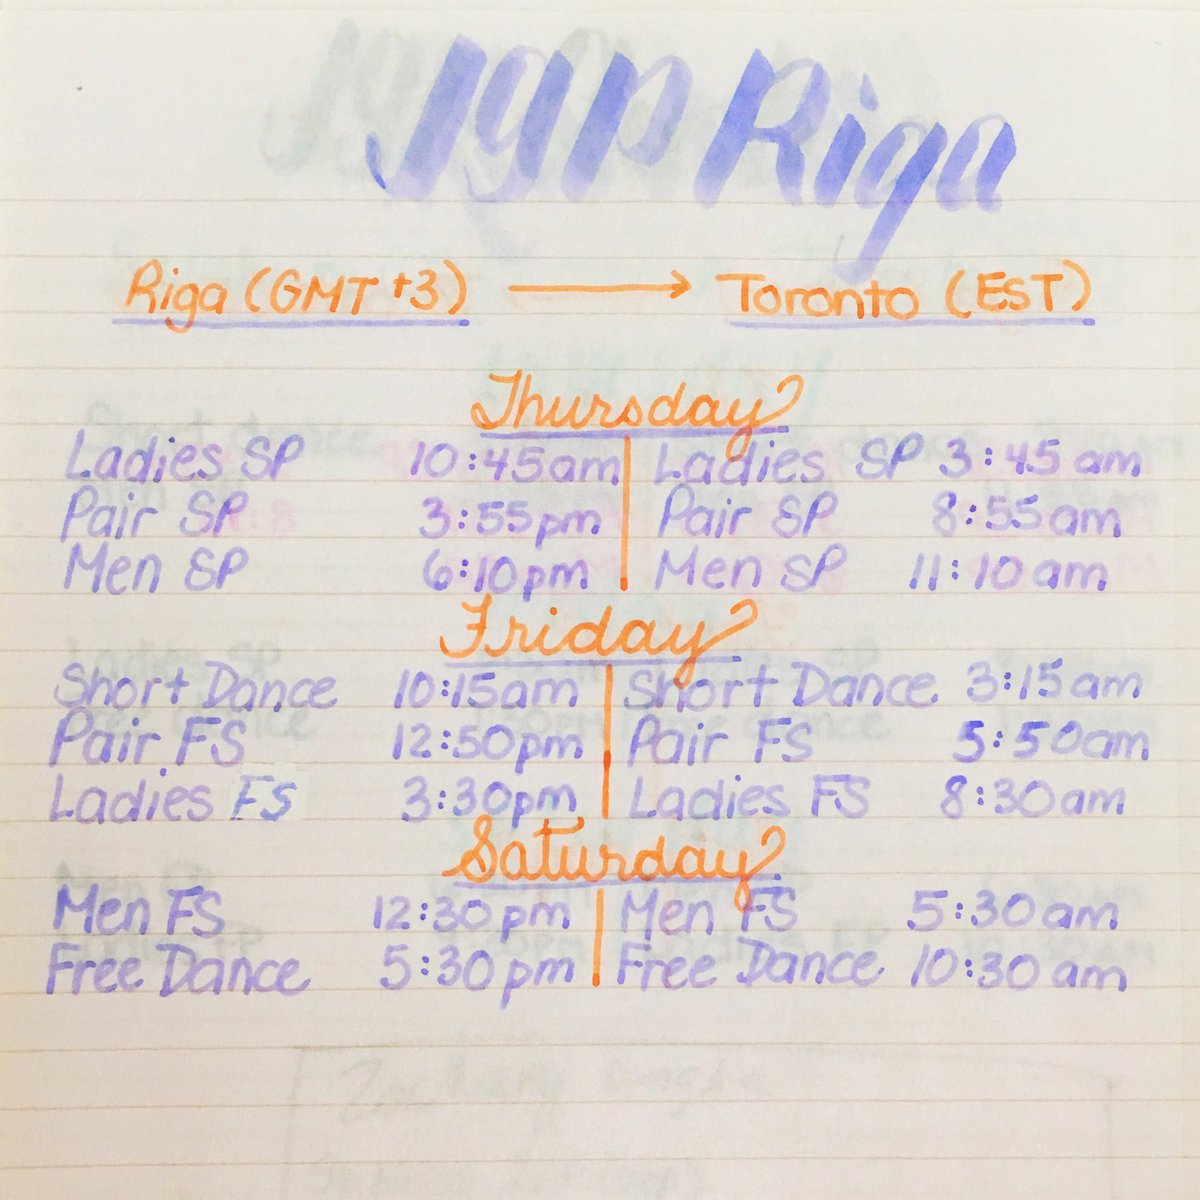 JGP Riga
Riga (GMT +3) → Toronto (EST)
Thursday
Ladies SP 10:45am Ladies SP 3:45 am
Pair SP 3:55pm Pair SP 8:55am
Men SP 6:10pm Men SP 11:10am
Friday
Short Dance 10:15am Short Dance 3:15am
Pair FS 12:50pm Pair FS 5:50am
Ladies FS 3:30pm Ladies FS 8:30am
Saturday
Men FS 12:30pm Men FS 5:30am
Free Dance 5:30pm Free Dance 10:30am